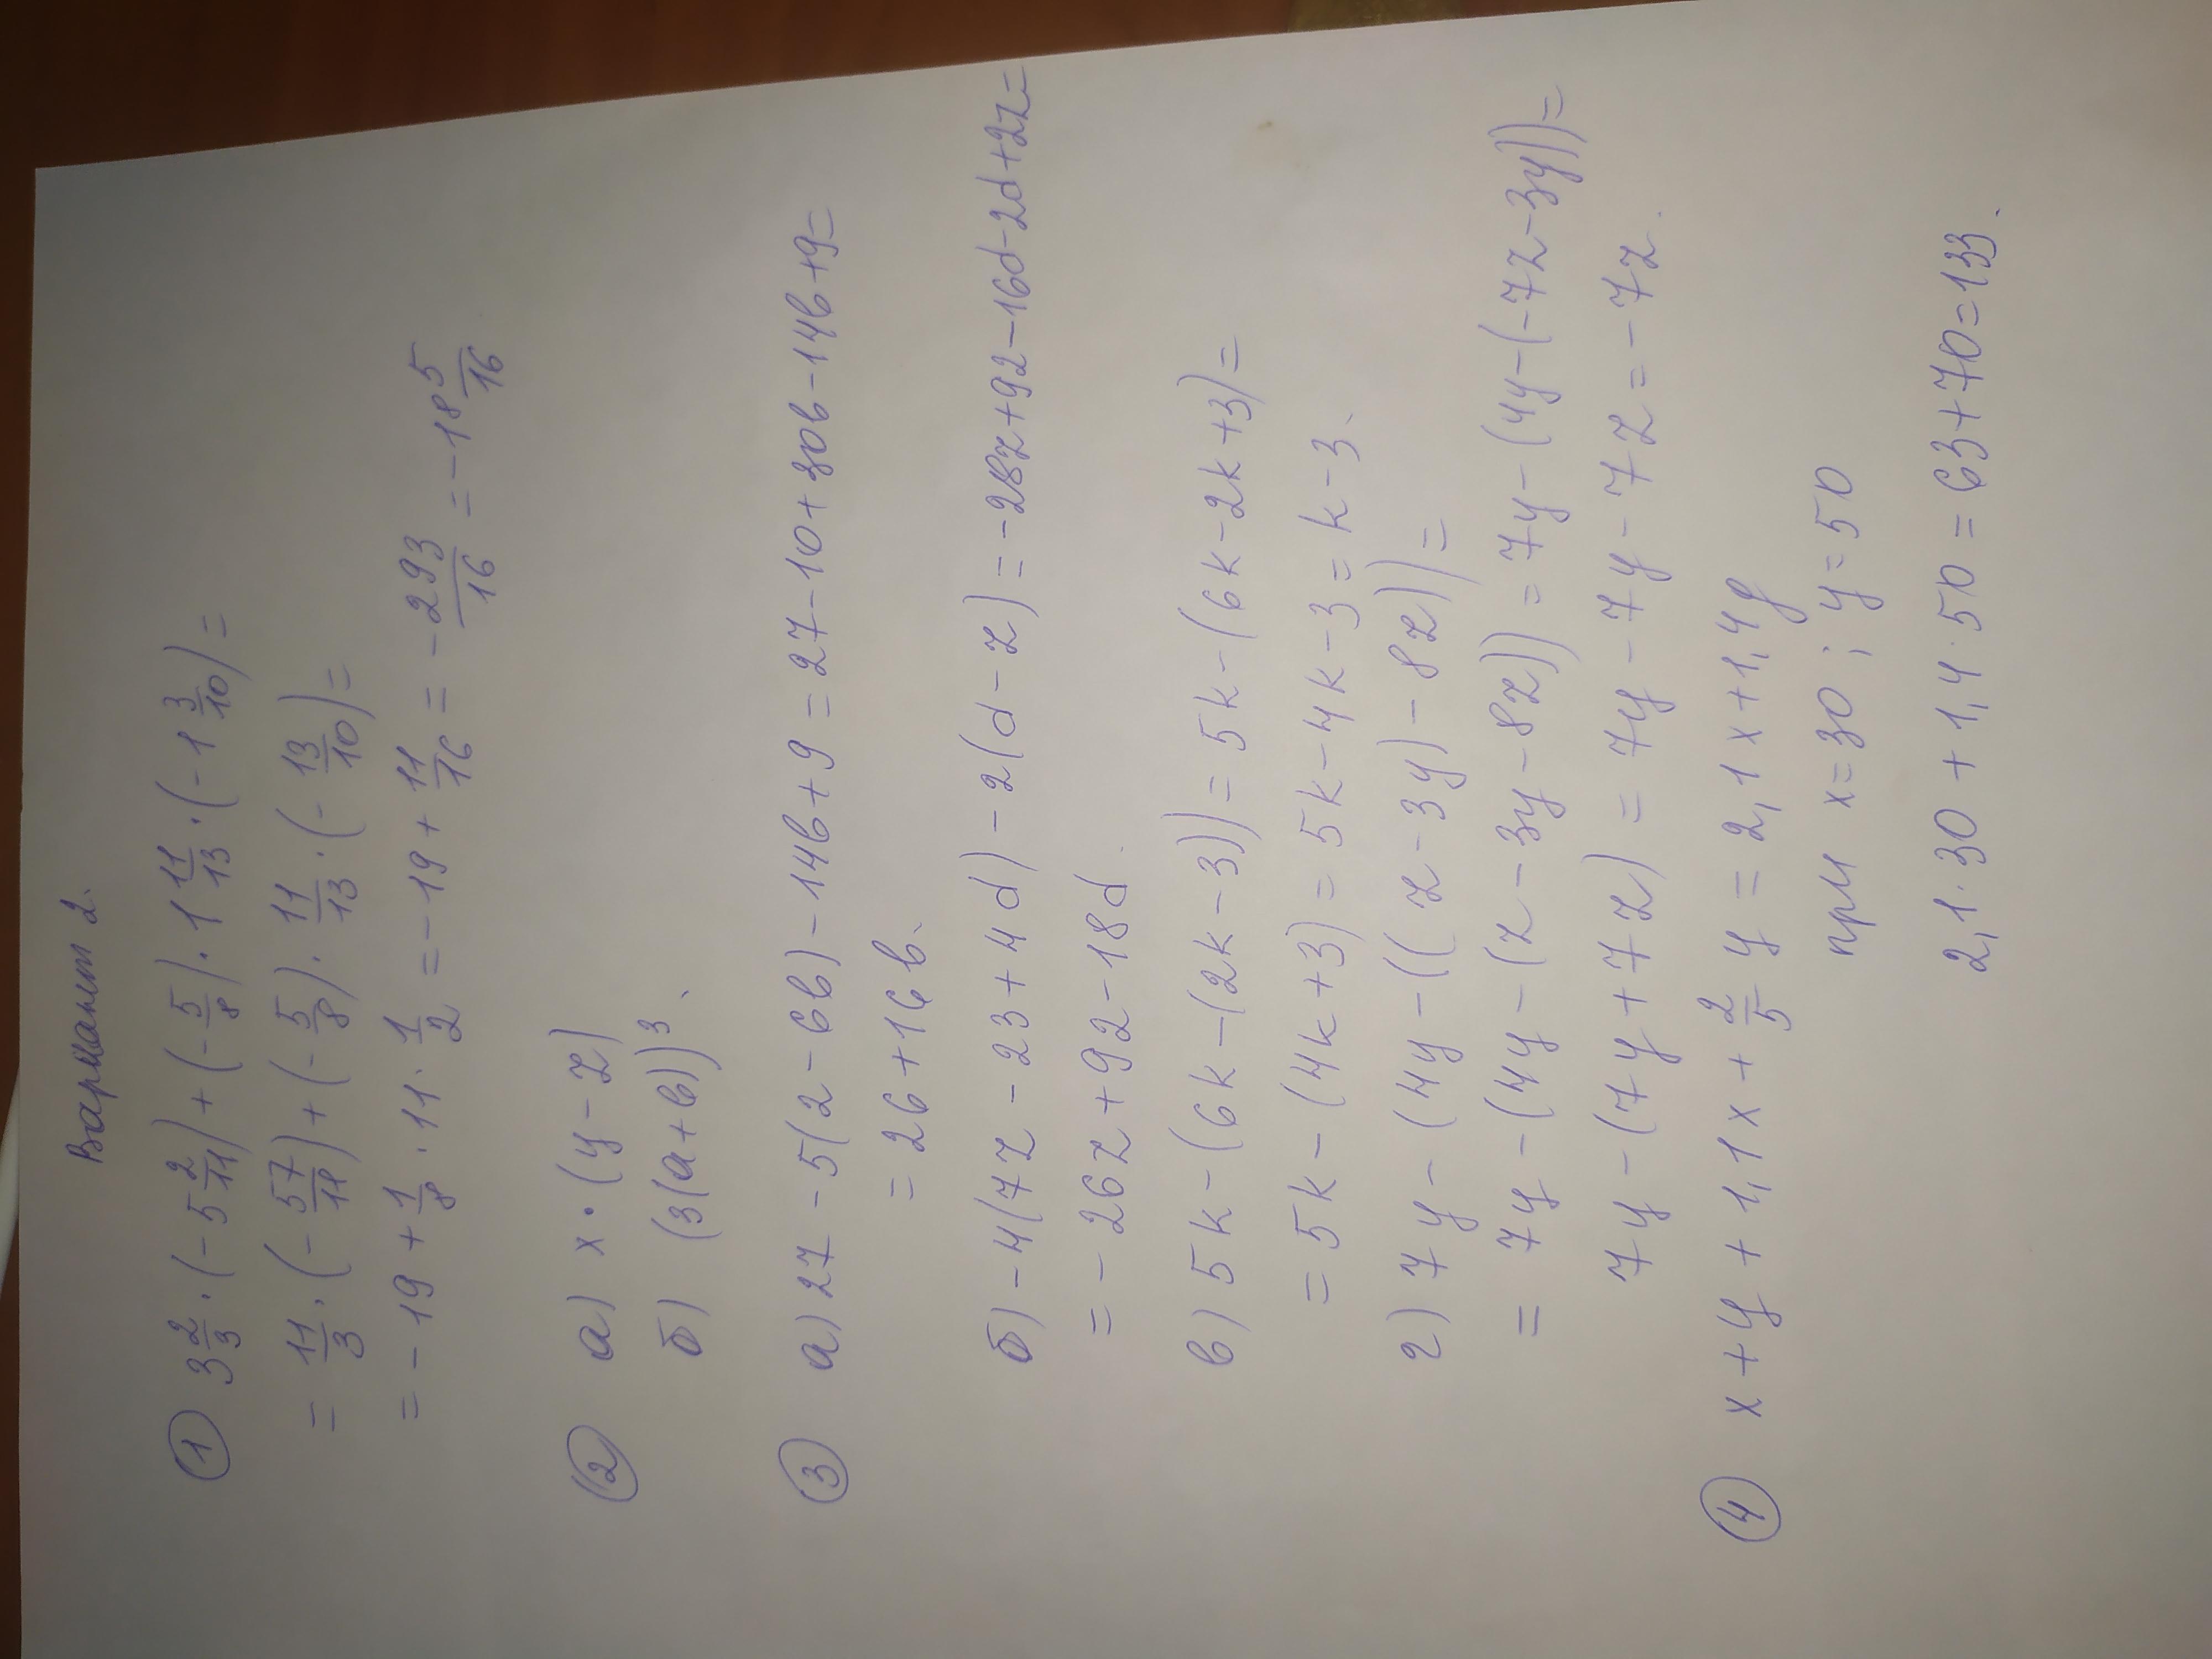 Вариант 2.
① 3 2/3 · (- 5 2/11) + (- 5/8) · 1 11/13 · (- 1 3/10) =
= 11/3 · (- 57/11) + (- 5/8) · 11/13 · (- 13/10) =
= - 19 + 1/8 · 11 · 1/2 = - 19 + 11/16 = - 293/16 = - 18 5/16
② а) x · (y - z)
б) (3(a+b))³.
③ а) 27 - 5(2 - 6b) - 14b + 9 = 27 - 10 + 30b - 14b + 9 =
= 26 + 16b.
б) - 4(7z - 23 + 4d) - 2(d - z) = - 28z + 92 - 16d - 2d + 2z =
= - 26z + 92 - 18d.
в) 5k - (6k - (2k - 3)) = 5k - (6k - 2k + 3) =
= 5k - (4k + 3) = 5k - 4k - 3 = k - 3.
г) 7y - (4y - ((z - 3y) - 8z)) =
= 7y - (4y - (z - 3y - 8z)) = 7y - (4y - (-7z - 3y)) =
7y - (7y + 7z) = 7y - 7y - 7z = - 7z.
④ x + y + 1,1x + 2/5 y = 2,1x + 1,4y
при x = 30 ; y = 50
2,1 · 30 + 1,4 · 50 = 63 + 70 = 133.